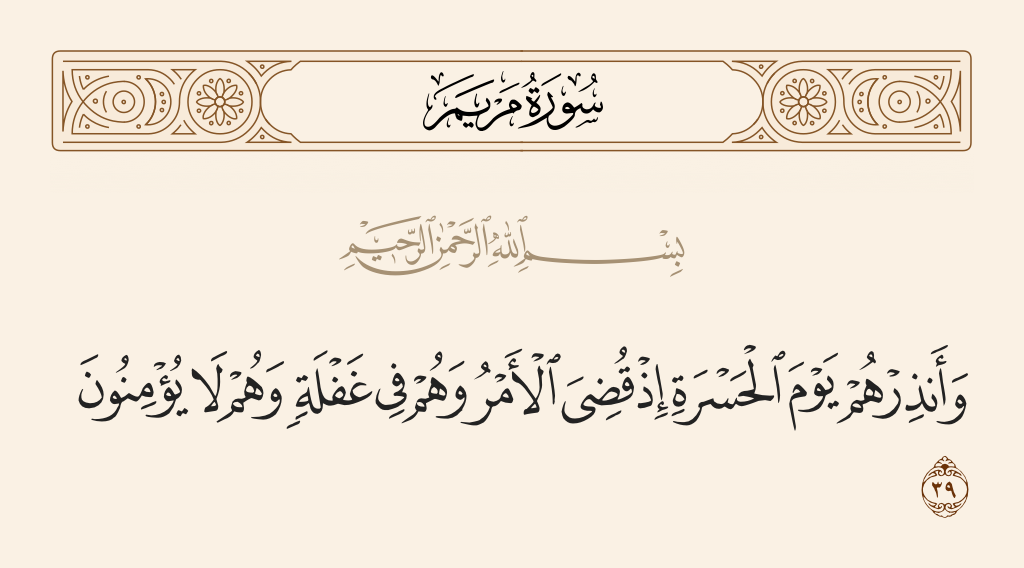 سُورَةُ مَرْيَمَ
بِسْمِ ٱللَّهِ ٱلرَّحْمَٰنِ ٱلرَّحِيمِ
وَأَنذِرْهُمْ يَوْمَ ٱلْحَسْرَةِ إِذْ قُضِىَ ٱلْأَمْرُ وَهُمْ فِى غَفْلَةٍ وَهُمْ لَا يُؤْمِنُونَ
٣٩